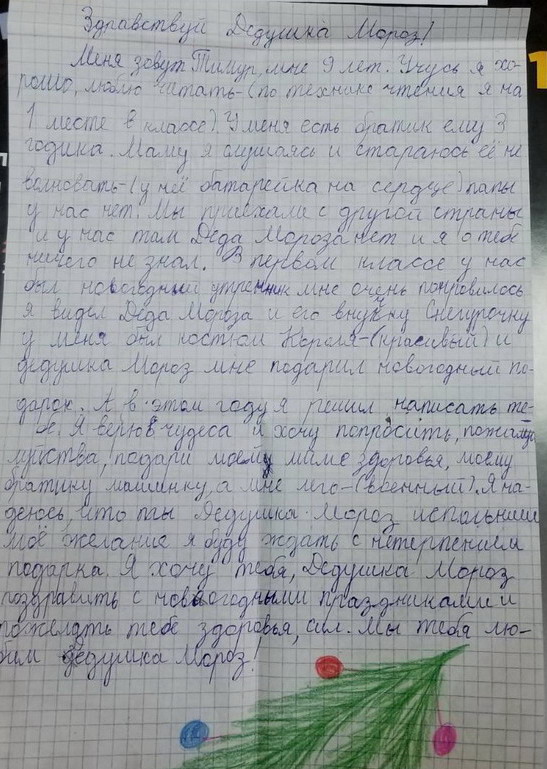 Здравствуй Дедушка Мороз!
Меня зовут Тимур, мне 9 лет. Учусь я хо-
рошо, люблю читать-(по технике чтения я на
1 месте в классе). У меня есть братик ему 3
годика. Маму я слушаюсь и стараюсь её не
волновать-(у неё батарейка на сердце) папы
у нас нет. Мы приехали с другой страны
и у нас там Деда Мороза нет и я о тебе
ничего не знал. В первом классе у нас
был новогодний утренник мне очень понравилось
я видел Деда Мороза и его внучку Снегурочку
у меня был костюм Короля-(красивый) и
дедушка Мороз мне подарил новогодный по-
дарок. А в этом году я решил написать те-
бе. Я верю в чудеса и хочу попросить, пожалуй
муйства, подари моему маме здоровья, моему
братику машинку, а мне лего-(военный). Я на-
деюсь, что ты Дедушка Мороз исполниш
моё желание я буду ждать с нетерпением
подарка. Я хочу тебя, Дедушка Мороз
поздравить с новогодными праздниками и
пожелать тебе здоровья, сил. Мы тебя лю-
бим дедушка Мороз!